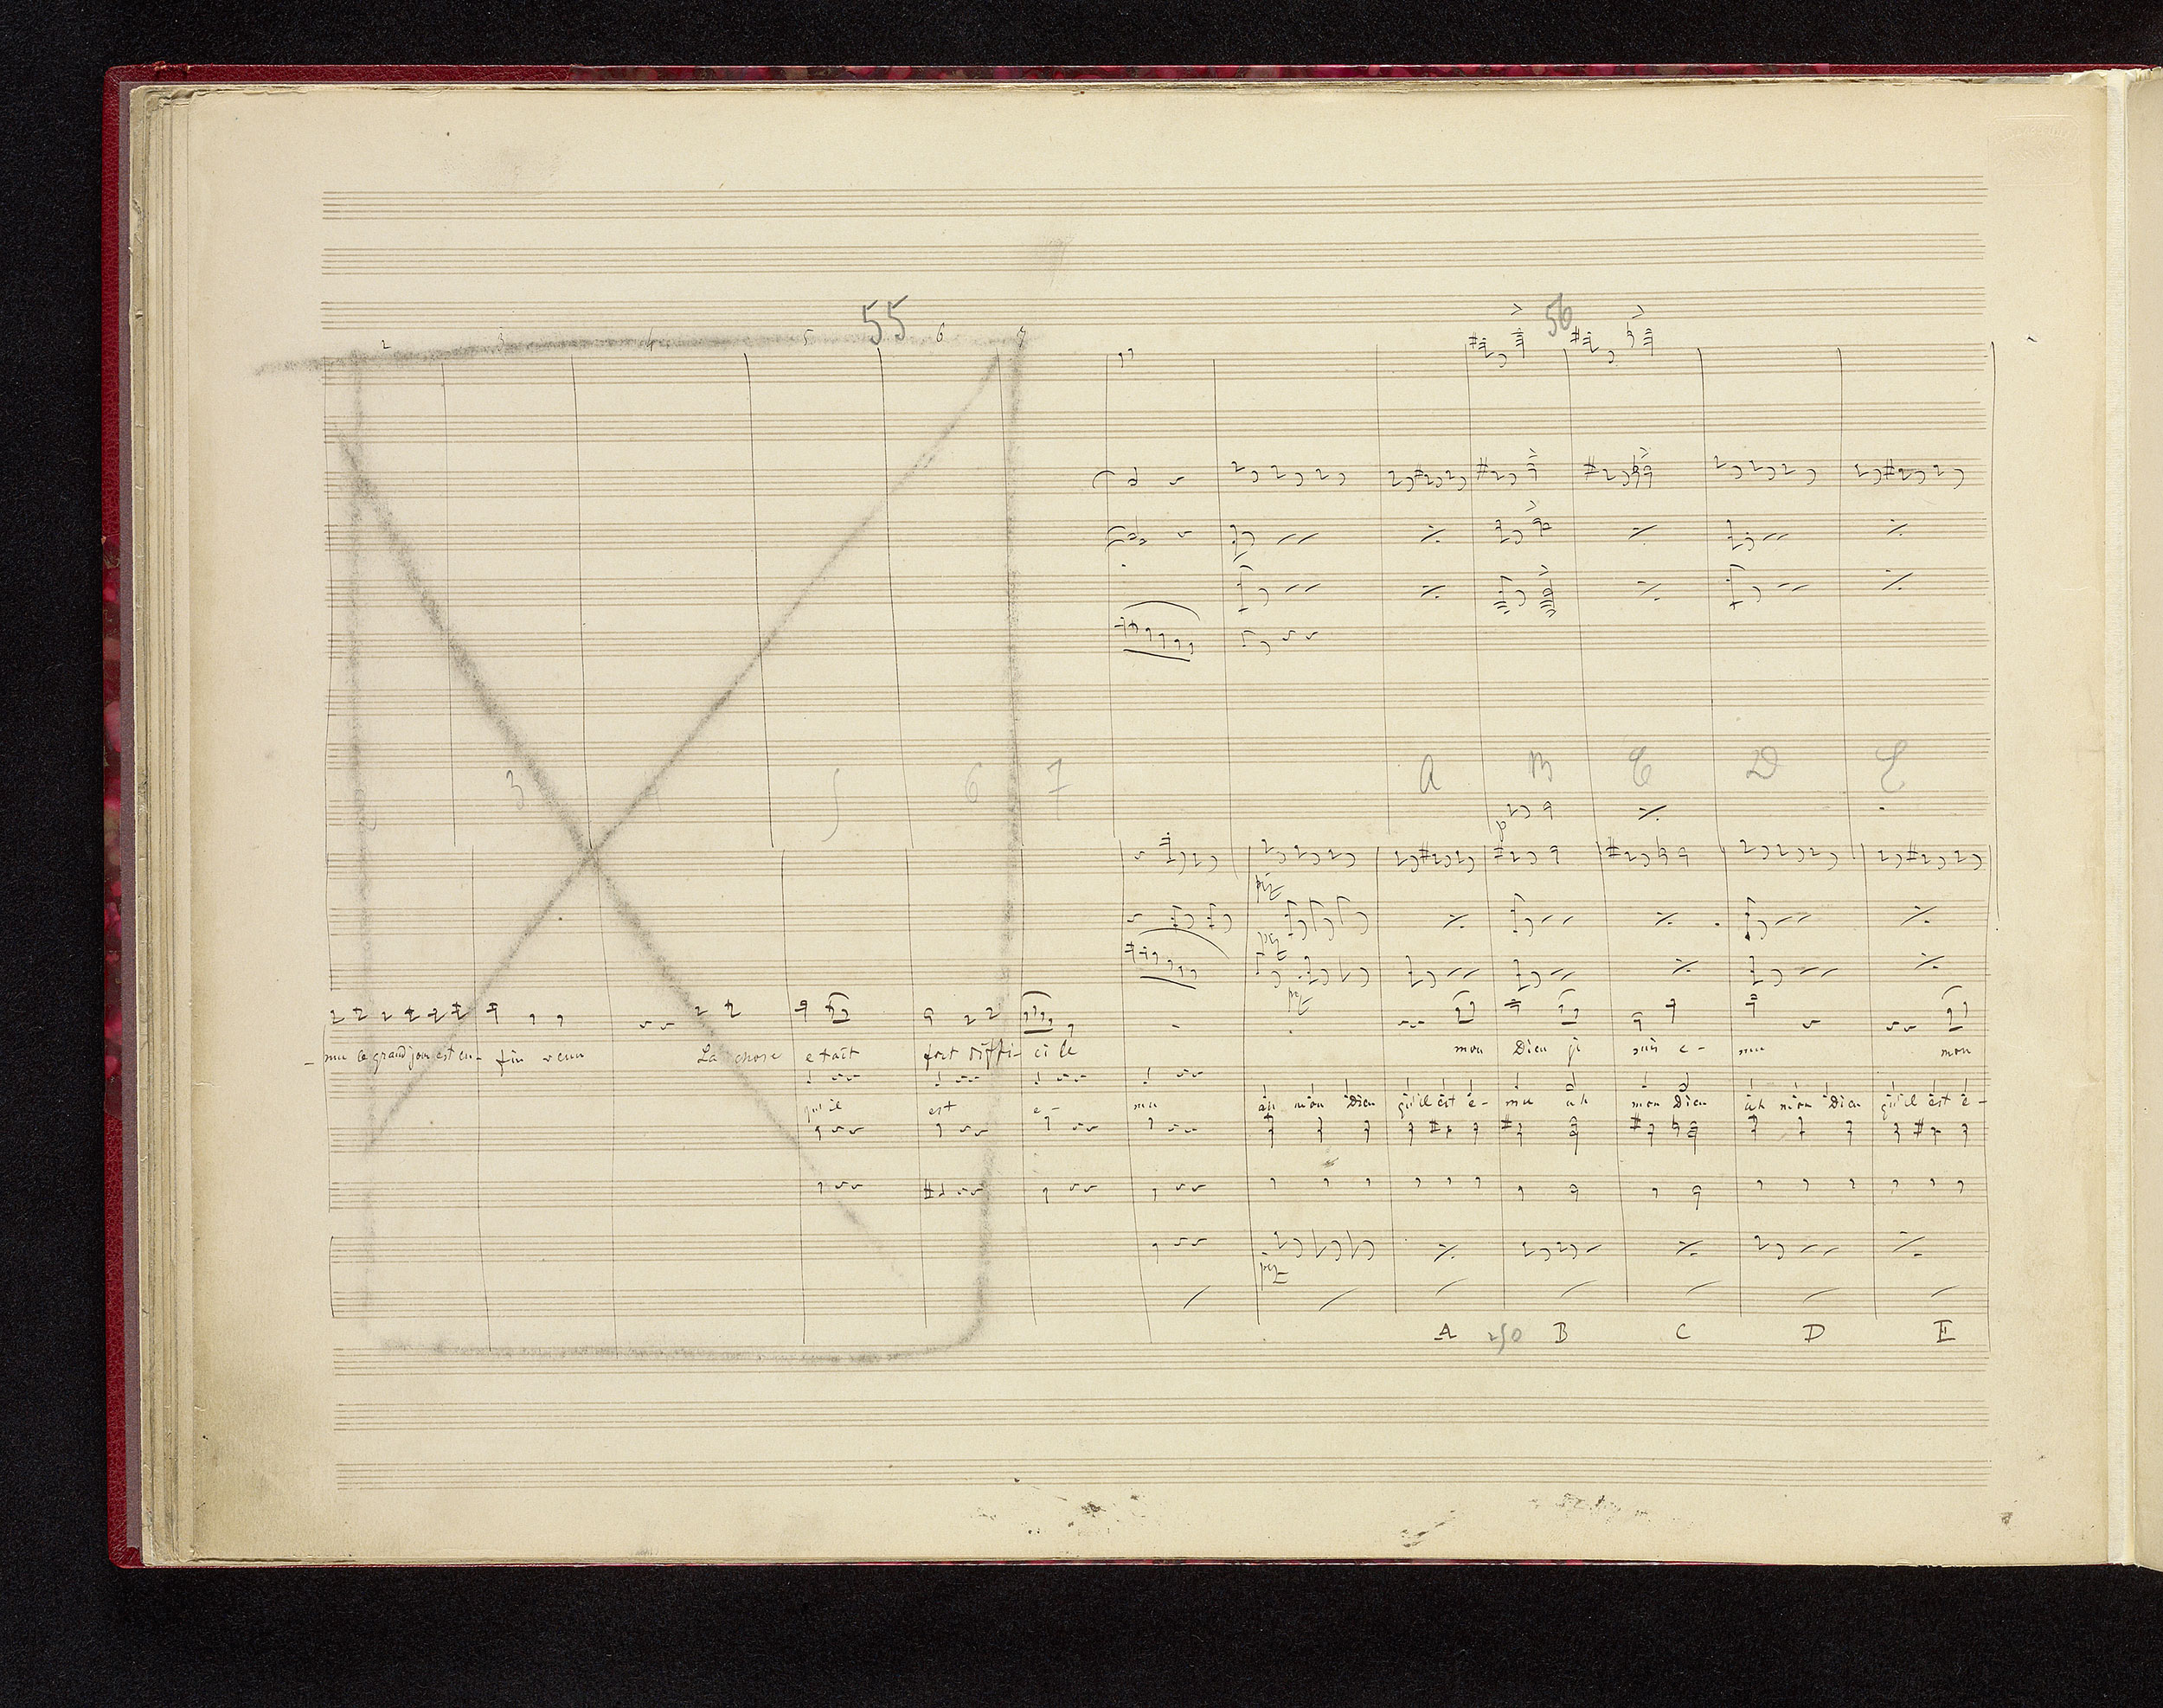 55 56
2 3 4 5 6 7
3 4 5 6 7 A B C D E
piz
piz
piz
- mu ce grand jour est en- fin venu La chose etait fort diffi- cile mon Dieu je suis e- mu mon
qu'il est e- mu ah mon Dieu qu'il est e- mu ah mon Dieu ah mon Dieu qu'il est e-
piz
A 250 B C D E